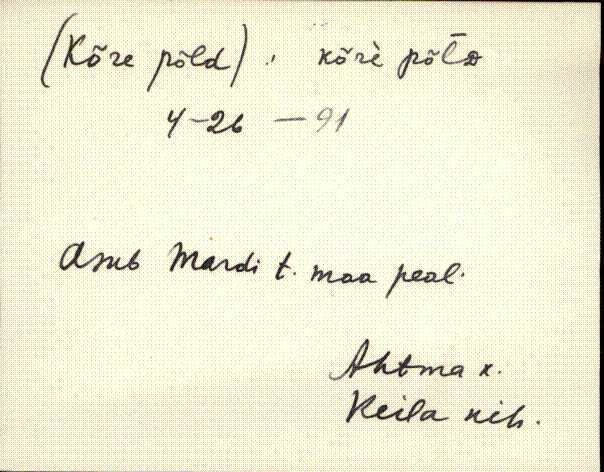 (Kõre põld) : kõrè põlᴅ
4-26 - 91
Asub Mardi t. maa peal.
Ahtma k.
Keila kih.